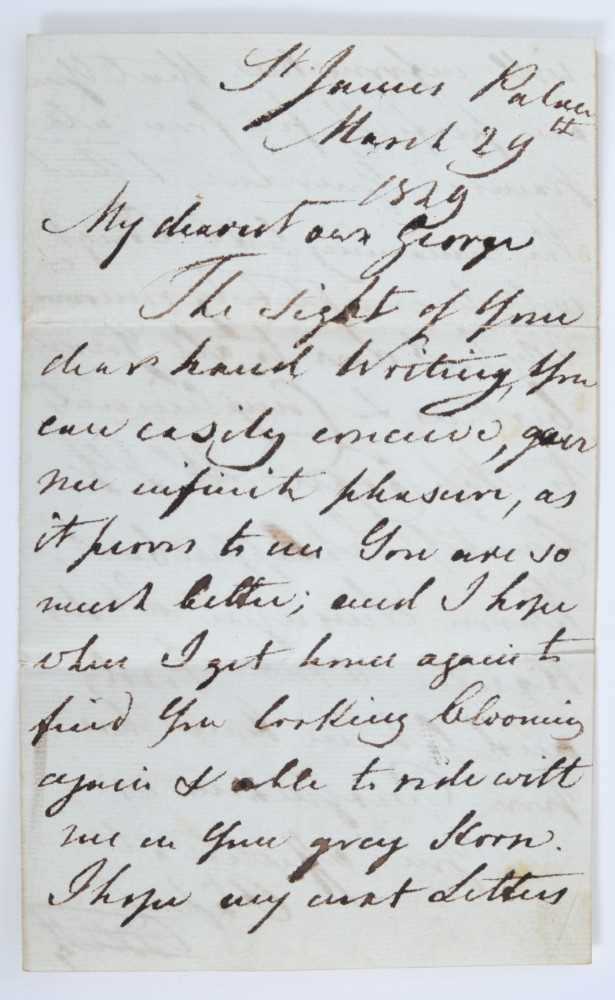 St James Palace
March 29th
1829
My dearest own George
The sight of Your
dear hand Writing, You
can easily conceive, gave
me infinite pleasure, as
it proves to me You are so
much better; and I hope
when I get home again to
find You looking blooming
again & able to ride with
me on Your grey Horse.
I hope my next Letters